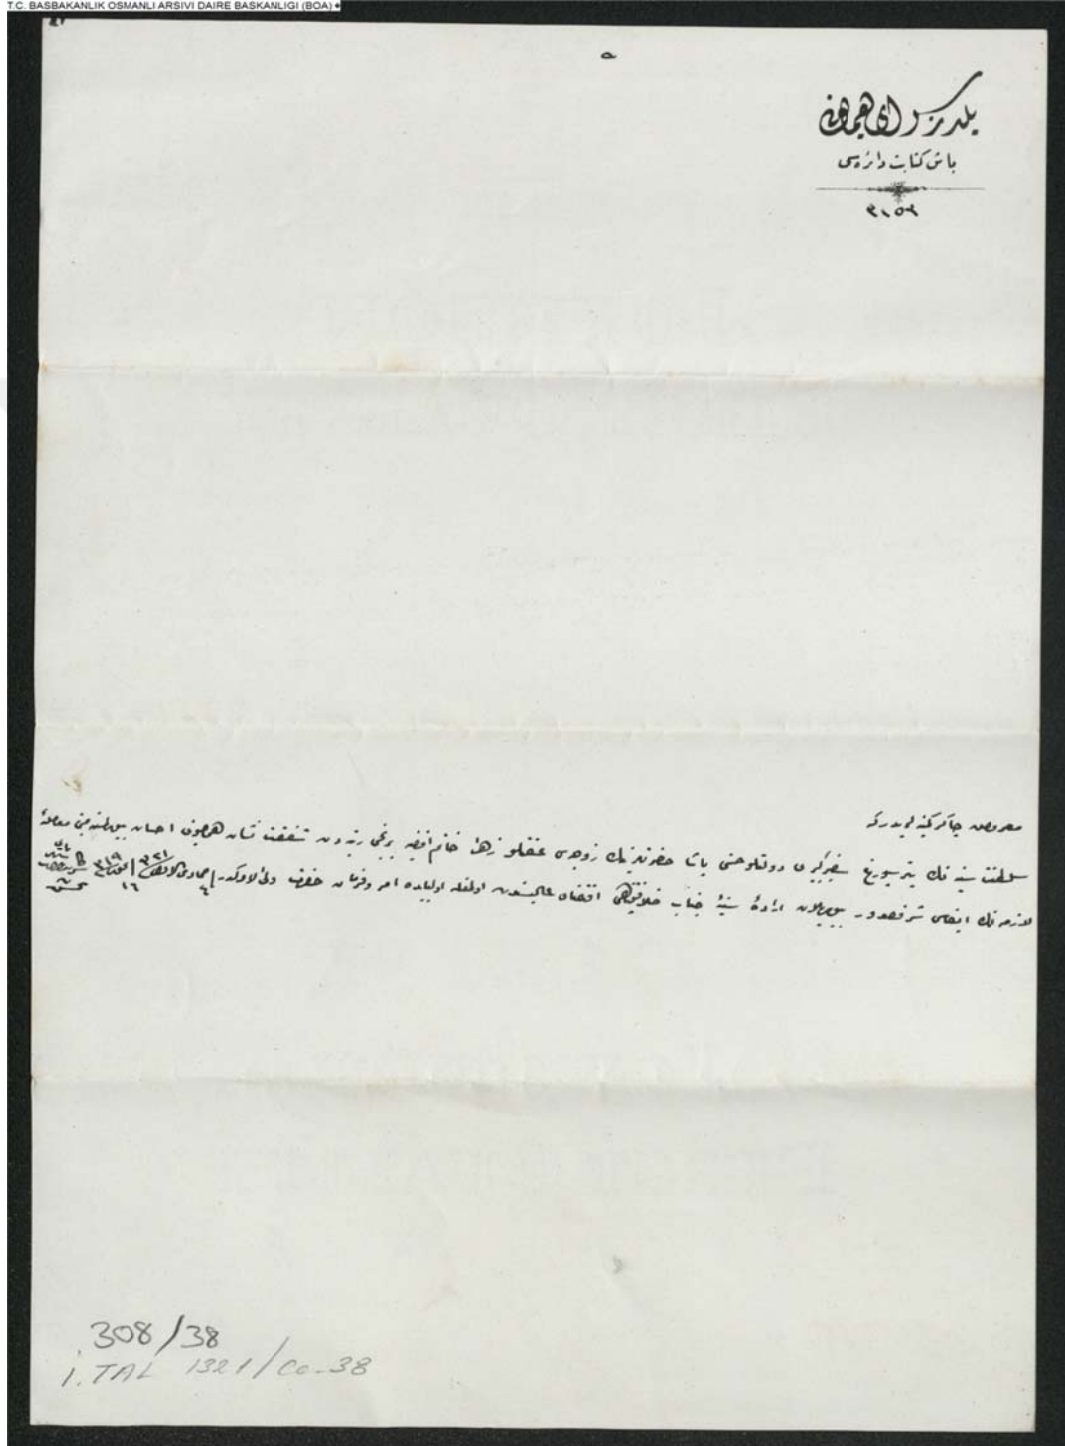 T.C. BASBAKANLIK OSMANLI ARSIVI DAIRE BASKANLIGI (BOA)
يلديز سراى همايونى
باش كتابت دائره سى
٣١٥٣
معروض چاكر كمينه لريدركه
سلطنت سنيه نك پترسبورغ سفير كبيرى دولتلو حسنى پاشا حضرتلرينك زوجه سى عفتلو زهرا خانم افندى يه برنجى رتبه دن شفقت نشان همايونى احسان بيورلمسنه مبنى معامله
لازمه نك ايفاسى شرفصدور بيوريلان ارادۀ سنيۀ جناب خلافتپناهى اقتضاى عاليسندن اولمغله اولبابده امر و فرمان حضرت ولى الامركدر ٣٢١ ٣١٩
308/38
İ.TAL 1321/Ca-38